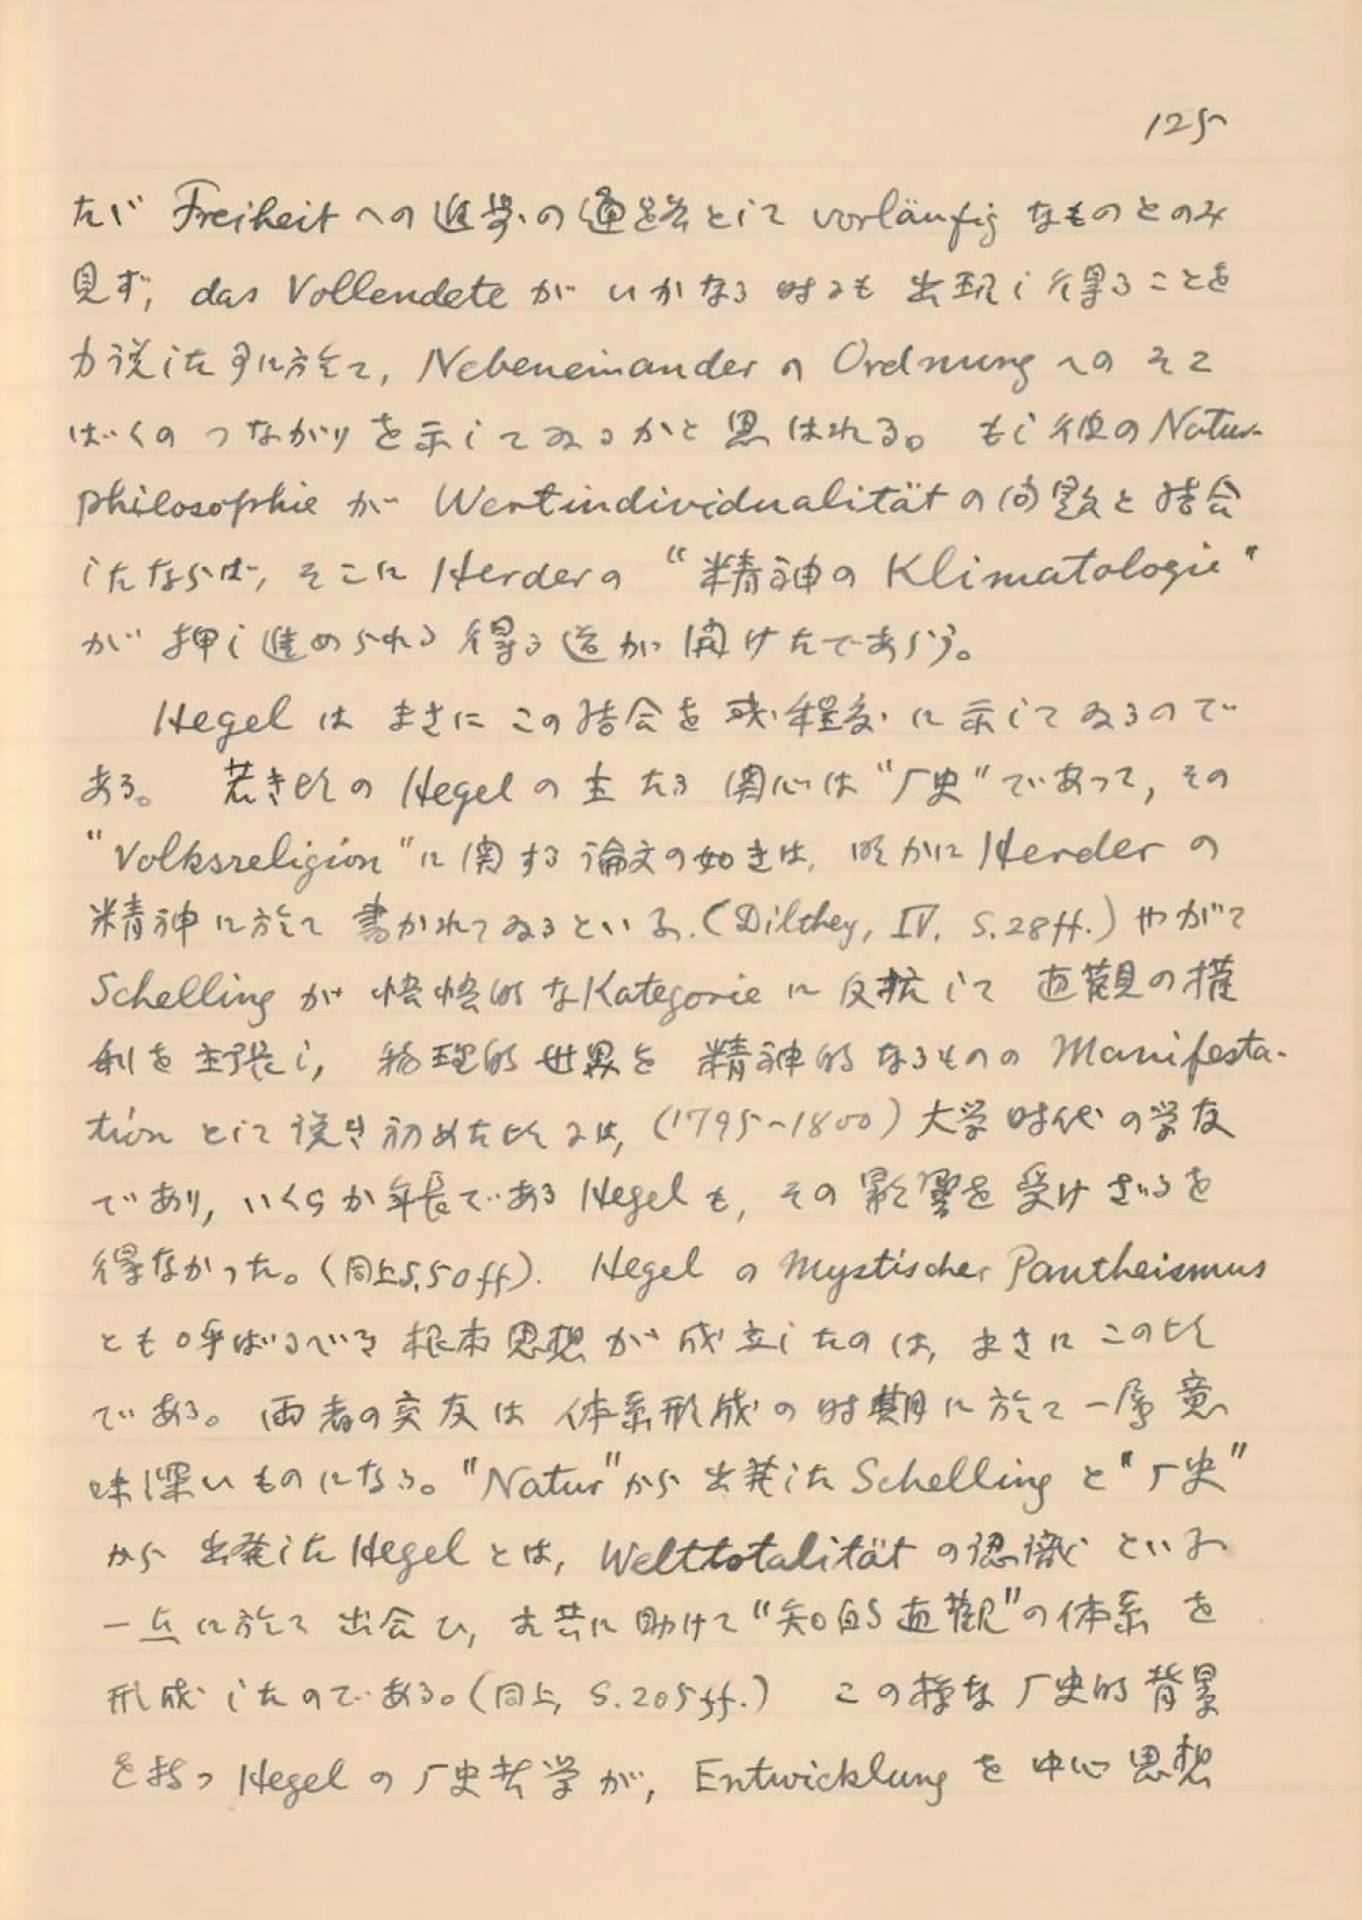 125
たゞ Freiheit への進歩の通路として vorläufig なものとのみ
見ず, das Vollendete が いかなる時にも 出現し得ることを
力説した点に於て, Nebeneinander の Ordnung への そこ
ばくの つながりを示してゐるかと思はれる。 もし彼の Natur-
philosophie が Wertindividualität の問題と結合
したならば, そこに Herder の “精神の Klimatologie”
が 押し進められる得る道が開けたであらう。
Hegel は まさに この結合を或程度に示してゐるので
ある。 若き比の Hegel の主たる関心は“厂史”であって, その
“Volksreligion”に関する論文の如きは, 明かに Herder の
精神に於て 書かれてゐるといふ.(Dilthey, IV. S.28ff.) やがて
Schelling が 悟性的な Kategorie に反抗して 直観の権
利を主張し, 物理的世界を 精神的なるものの Manifesta-
tion として説き初めた比には, (1795~1800) 大学時代の学友
であり, いくらか年長である Hegel も, その影響を受けざるを
得なかった。(同上S.50ff). Hegel の Mystischer Pantheismus
とも呼ばるべき根本思想が成立したのは, まさに この比
である。 両者の交友は 体系形成の時期に於て一層意
味深いものになる。“Natur”から出発した Schelling と“厂史”
から 出発した Hegel とは, Welttotalität の認識といふ
一点に於て 出会ひ, 共に助けて“知的直観”の体系を
形成したのである。(同上, S.205ff.) この様な 厂史的背景
を持つ Hegel の厂史哲学が, Entwicklung を中心思想